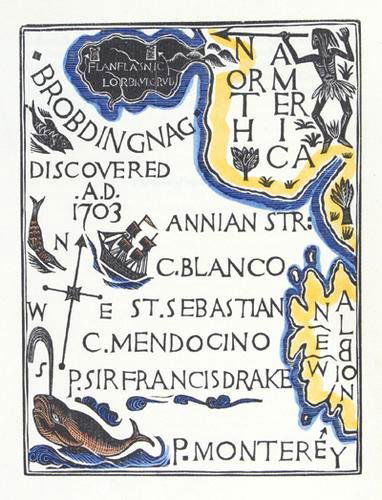 FLANFLASNIC
LORBRULGRUD
BROBDINGNAG
NORTH
AMERICA
DISCOVERED
.A.D.
1703
ANNIAN STR:
C.BLANCO
N
W
E
S
ST.SEBASTIAN
C.MENDOCINO
P.SIR FRANCIS DRAKE
NEW
ALBION
P.MONTEREY